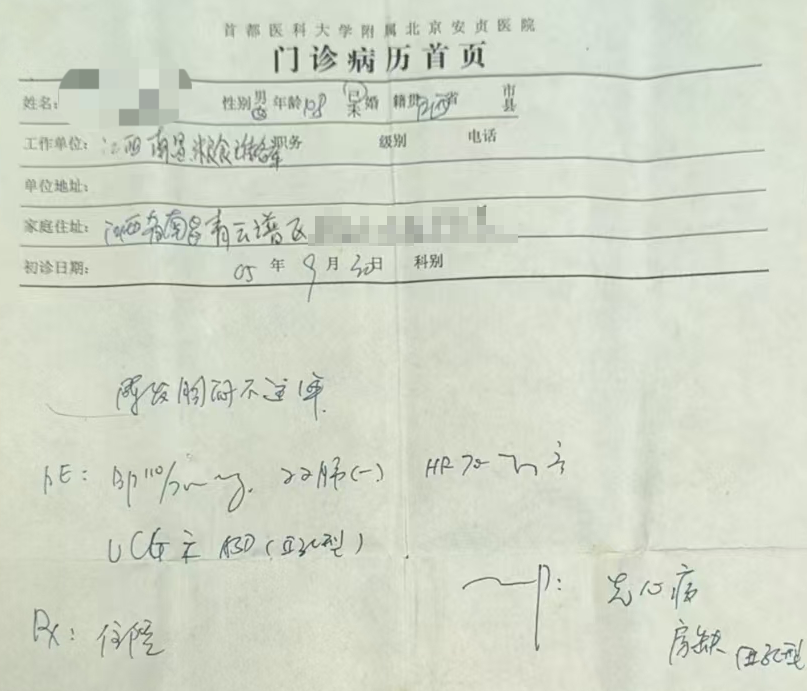 首都医科大学附属北京安贞医院
门诊病历首页
姓名: 性别 男 女 年龄 已 未 婚 籍贯 江西省 市 县
工作单位: 江西南昌粮食 职务 级别 电话
单位地址:
家庭住址: 江西省南昌青云谱区
初诊日期: 05 年 9 月 30日 科别
阵发胸闷不适1年
PE: Bp 110/70mmHg. 双肺(-) HR 72
UCG示 ASD(II孔型)
先心病
Rx: 住院
房缺 II孔型